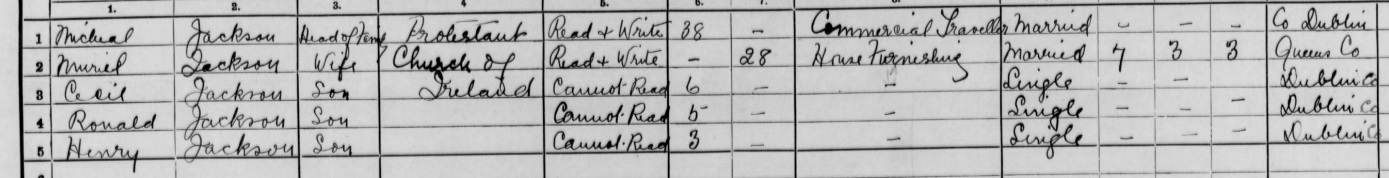 1. 2. 3. 4 5. 6. 7.
1 Micheal Jackson Head of Family Protestant Read & Write 38 - Commercial Traveller Married - - - Co Dublin
2 Muriel Jackson Wife Church of Read & Write - 28 House Furnishing Married 7 3 3 Queens Co
3 Cecil Jackson Son Ireland Cannot Read 6 - - Single - - Dublin Co
4 Ronald Jackson Son Cannot Read 5 - - Single - - - Dublin Co
5 Henry Jackson Son Cannot Read 3 - - Single - - - Dublin Co